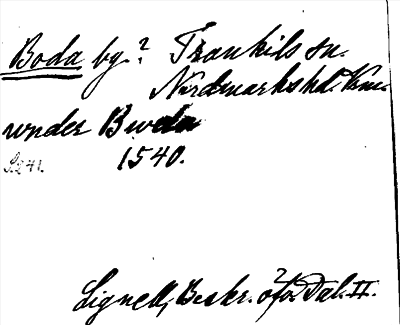 Boda by.? Trankils sn.
Nordmarks hd. Vrm.
under Bwda
1540.
Lignell, Beskr. öfv. Dal. II.